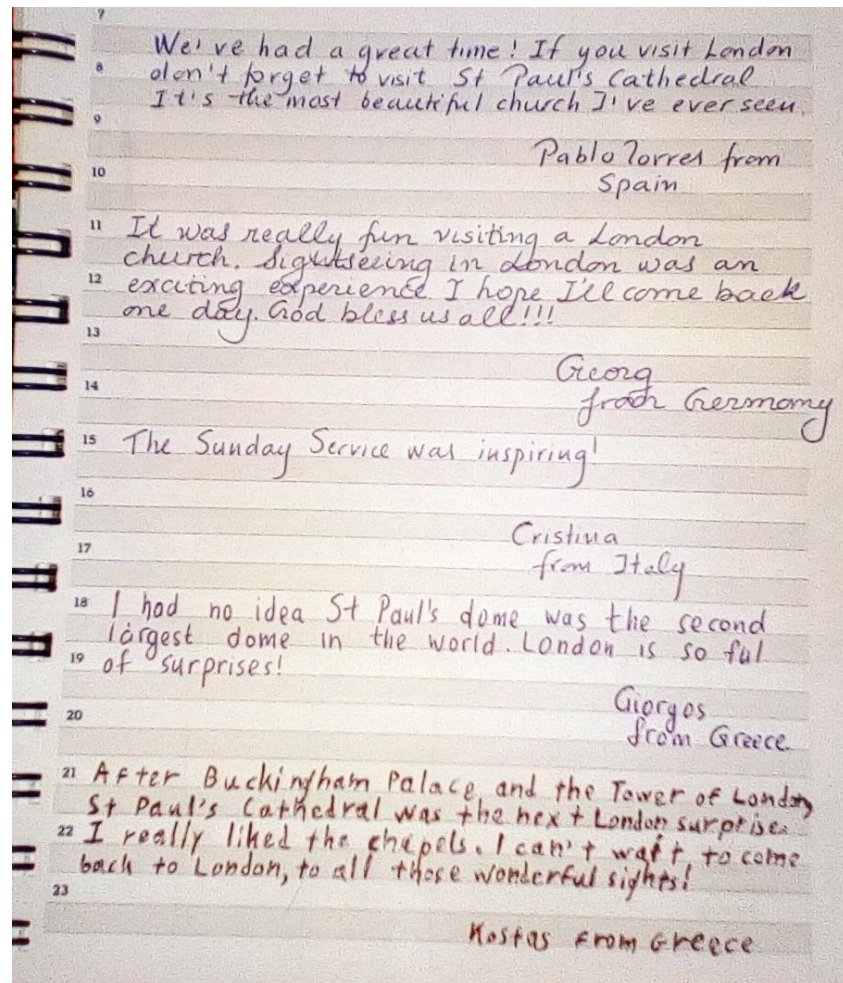 7
We've had a great time! If you visit London
8 don't forget to visit St Paul's Cathedral
It's the most beautiful church I've ever seen.
9
Pablo Torres from
10
Spain
11 It was really fun visiting a London
church. Sightseeing in London was an
12 exciting experience. I hope I'll come back
one day. God bless us all!!!
13
Georg
14
from Germany
15 The Sunday Service was inspiring!
16
Cristina
17
from Italy
18 I had no idea St Paul's dome was the second
largest dome in the world. London is so ful
19 of surprises!
Giorgos
20
from Greece
21 After Buckingham Palace and the Tower of London,
St Paul's Cathedral was the next London surprise.
22 I really liked the chapels. I can't wait to come
back to London, to all those wonderful sights!
23
Kostas from Greece